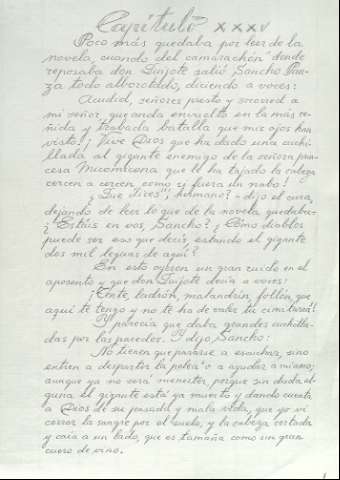 Capítulo XXXV
Poco más quedaba por leer de la
novela, cuando del camaranchón donde
reposaba don Quijote salió Sancho Pan-
za todo alborotado, diciendo a voces:
Acudid, señores, presto y socorred a
mi señor, que anda envuelto en la más re-
ñida y trabada batalla que mis ojos han
visto! ¡Vive Dios que ha dado una cuchi-
llada al gigante enemigo de la señora prin-
cesa Micomicona, que le ha tajado la cabeza
cercen a cercen, como si fuera un nabo!
¿Qué dices, hermano? - dijo el cura,
dejando de leer lo que de la novela quedaba-
¿Estáis en vos, Sancho? ¿Cómo diablos
puede ser eso que decís, estando el gigante
dos mil leguas de aquí?
En esto oyeron un gran ruido en el
aposento y que don Quijote decía a voces:
¡Tente, ladrón, malandrín, follón, que
aquí te tengo y no te ha de valer tu cimitarra!
Y parecía que daba grandes cuchilla-
das por las paredes. Y dijo Sancho:
No tienen que pararse a escuchar, sino
entren a despartir la pelea o a ayudar a mi amo;
aunque ya no será menester, porque sin duda al-
guna el gigante está ya muerto y dando cuenta
a Dios de su pasada y mala vida, que yo vi
correr la sangre por el suelo, y la cabeza cortada
y caía a un lado, que es tamaña como un gran
cuero de vino.